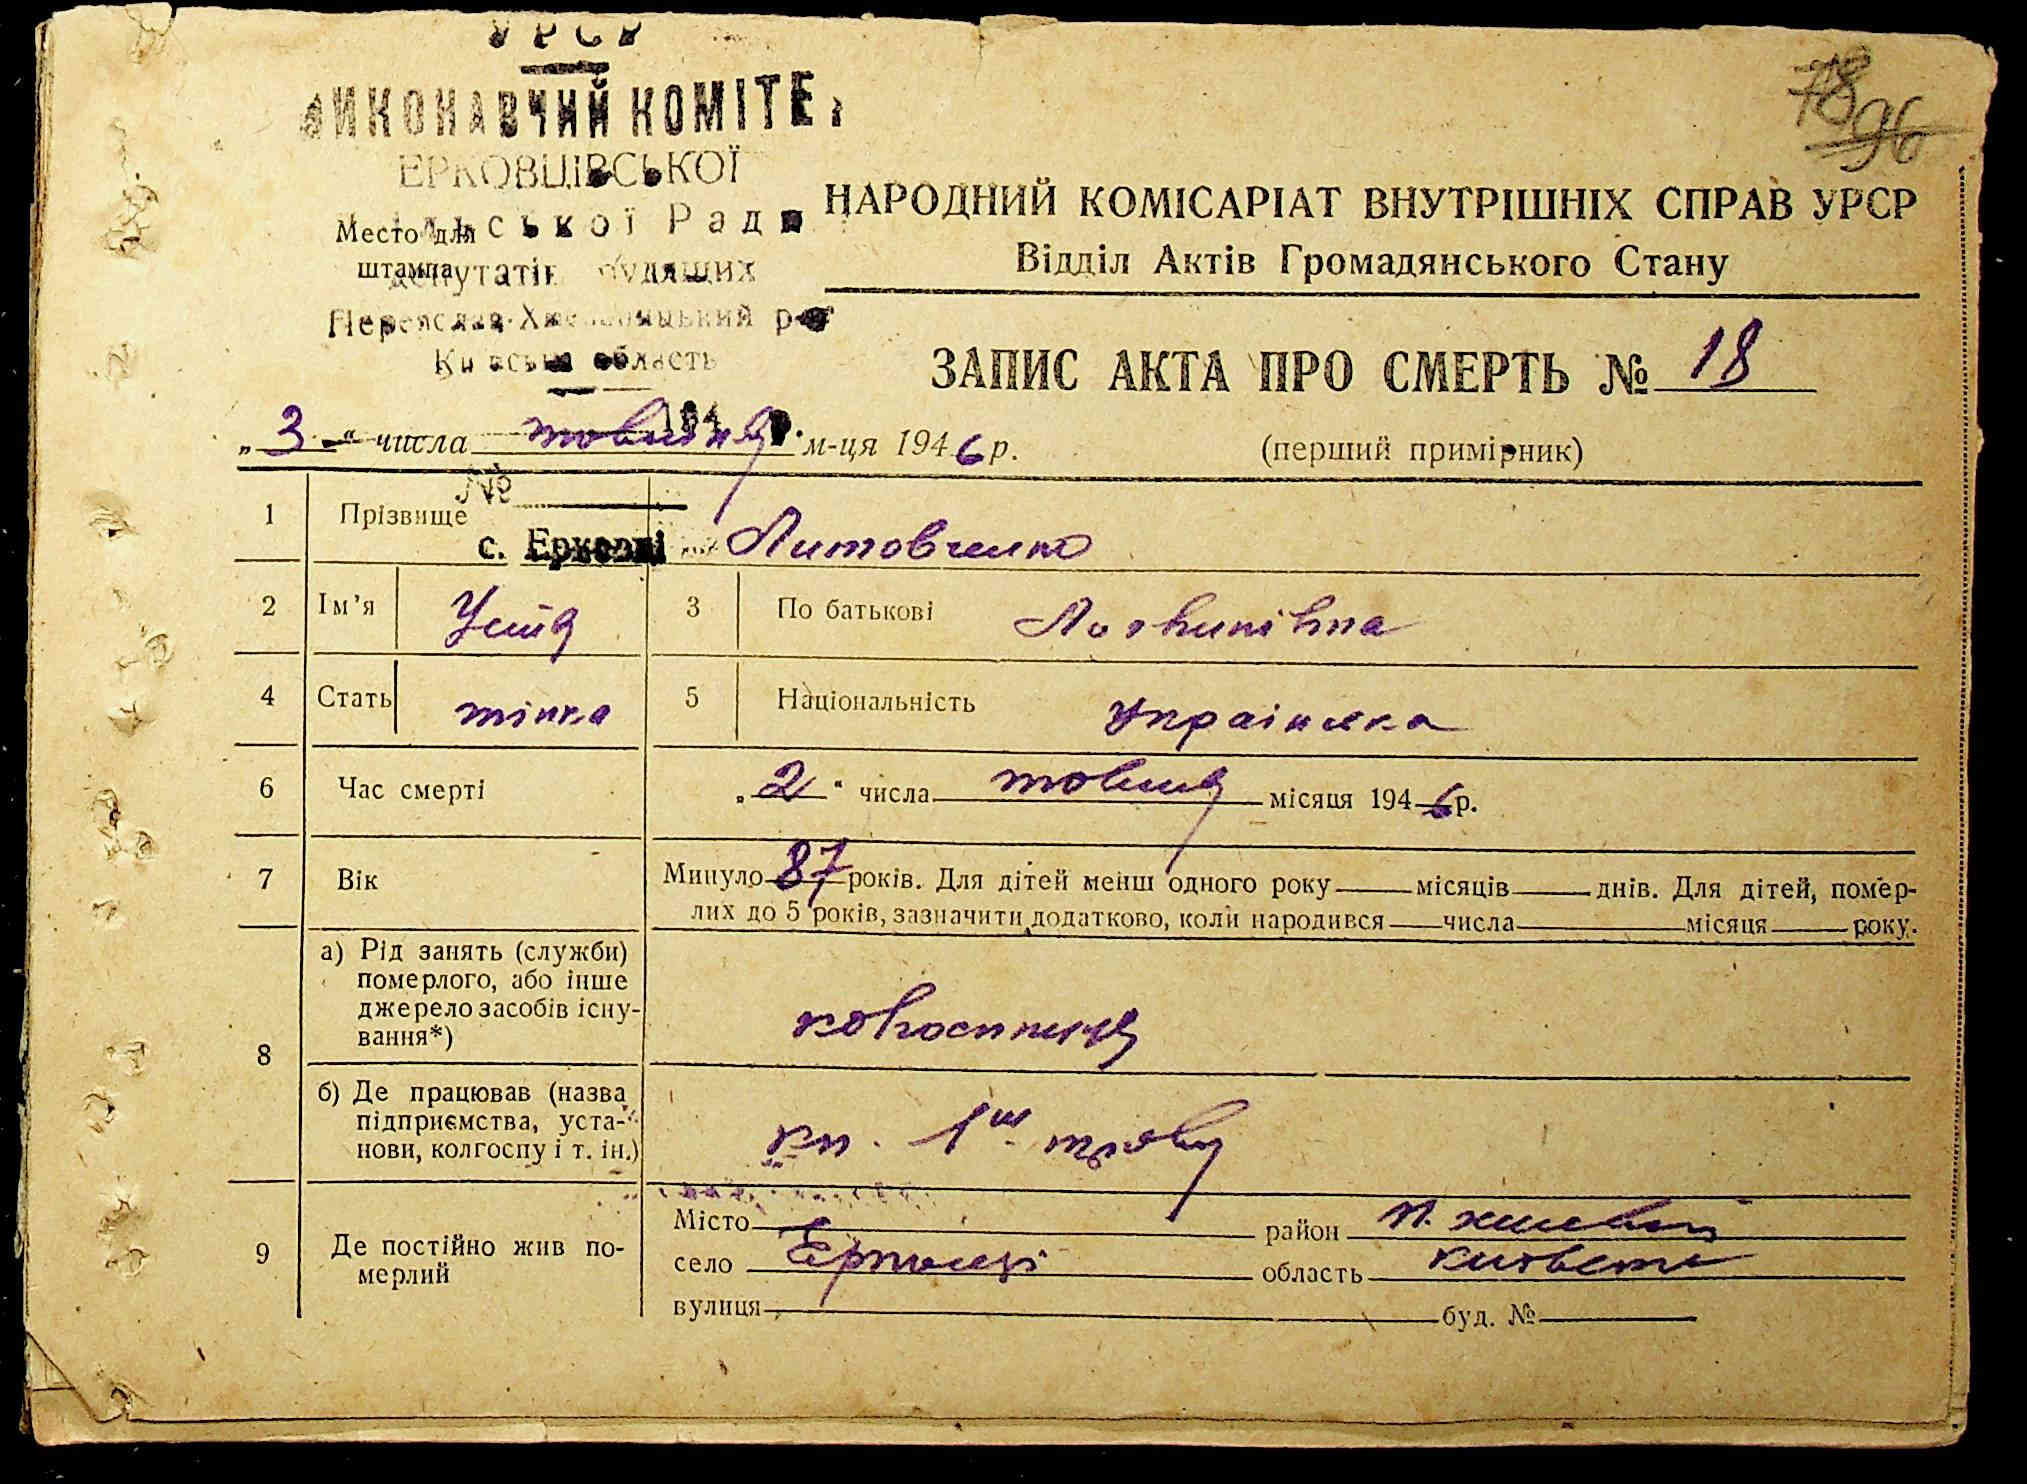 УРСР
ВИКОНАВЧИЙ КОМІТЕТ
ЕРКОВЦІВСЬКОЇ
сільської Ради
депутатів трудящих
Переяслав-Хмельницький р-н
Київська область
Место для
штампа
194 р.
№
с. Ерковці
78
96
НАРОДНИЙ КОМІСАРІАТ ВНУТРІШНІХ СПРАВ УРСР
Відділ Актів Громадянського Стану
ЗАПИС АКТА ПРО СМЕРТЬ № 18
„3“ числа жовтня м-ця 1946 р.
(перший примірник)
1 Прізвище Литовченко
2 Ім’я Устя 3 По батькові
4 Стать жінка 5 Національність українка
6 Час смерті „2“ числа жовтня місяця 1946 р.
7 Вік Минуло 87 років. Для дітей менш одного року місяців днів. Для дітей, помер-
лих до 5 років, зазначити додатково, коли народився числа місяця року.
8 а) Рід занять (служби)
померлого, або інше
джерело засобів існу-
вання*)
колгоспниця
б) Де працював (назва
підприємства, уста-
нови, колгоспу і т. ін.)
1ш
9 Де постійно жив по-
мерлий
Місто район П. Хмельн
село Ерковці область Київська
вулиця буд. №